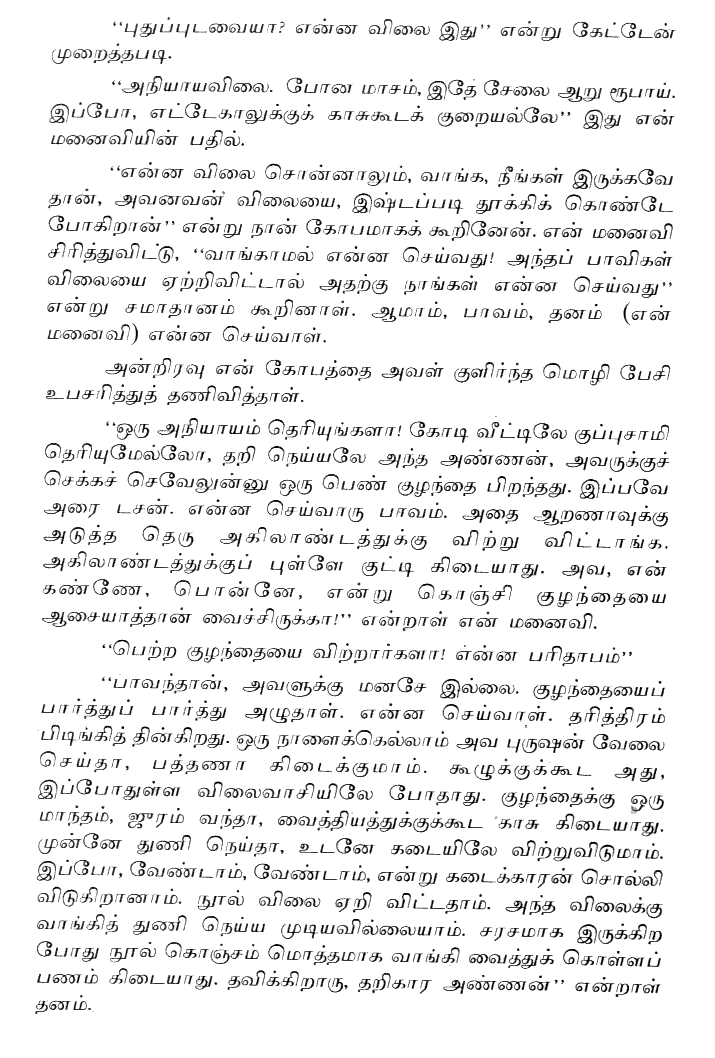 “புதுப்புடவையா? என்ன விலை இது” என்று கேட்டேன்
முறைத்தபடி.
“அநியாயவிலை. போன மாசம், இதே சேலை ஆறு ரூபாய்.
இப்போ, எட்டேகாலுக்குக் காசுகூடக் குறையல்லே” இது என்
மனைவியின் பதில்.
“என்ன விலை சொன்னாலும், வாங்க, நீங்கள் இருக்கவே
தான், அவனவன் விலையை, இஷ்டப்படி தூக்கிக் கொண்டே
போகிறான்” என்று நான் கோபமாகக் கூறினேன். என் மனைவி
சிரித்துவிட்டு, “வாங்காமல் என்ன செய்வது! அந்தப் பாவிகள்
விலையை ஏற்றிவிட்டால் அதற்கு நாங்கள் என்ன செய்வது”
என்று சமாதானம் கூறினாள். ஆமாம், பாவம், தனம் (என்
மனைவி) என்ன செய்வாள்.
அன்றிரவு என் கோபத்தை அவள் குளிர்ந்த மொழி பேசி
உபசரித்துத் தணிவித்தாள்.
“ஒரு அநியாயம் தெரியுங்களா! கோடி வீட்டிலே குப்புசாமி
தெரியுமேல்லோ, தறி நெய்யலே அந்த அண்ணன், அவருக்குச்
செக்கச் செவேலுன்னு ஒரு பெண் குழந்தை பிறந்தது. இப்பவே
அரை டசன். என்ன செய்வாரு பாவம். அதை ஆறணாவுக்கு
அடுத்த தெரு அகிலாண்டத்துக்கு விற்று விட்டாங்க.
அகிலாண்டத்துக்குப் புள்ளே குட்டி கிடையாது. அவ, என்
கண்ணே, பொன்னே, என்று கொஞ்சி குழந்தையை
ஆசையாத்தான் வைச்சிருக்கா!” என்றாள் என் மனைவி.
“பெற்ற குழந்தையை விற்றார்களா! என்ன பரிதாபம்”
“பாவந்தான், அவளுக்கு மனசே இல்லை. குழந்தையைப்
பார்த்துப் பார்த்து அழுதாள். என்ன செய்வாள். தரித்திரம்
பிடிங்கித் தின்கிறது. ஒரு நாளைக்கெல்லாம் அவ புருஷன் வேலை
செய்தா, பத்தணா கிடைக்குமாம். கூழுக்குக்கூட அது,
இப்போதுள்ள விலைவாசியிலே போதாது. குழந்தைக்கு ஒரு
மாந்தம், ஜுரம் வந்தா, வைத்தியத்துக்குக்கூட காசு கிடையாது.
முன்னே துணி நெய்தா, உடனே கடையிலே விற்றுவிடுமாம்.
இப்போ, வேண்டாம், வேண்டாம், என்று கடைக்காரன் சொல்லி
விடுகிறானாம். நூல் விலை ஏறி விட்டதாம். அந்த விலைக்கு
வாங்கித் துணி நெய்ய முடியவில்லையாம். சரசமாக இருக்கிற
போது நூல் கொஞ்சம் மொத்தமாக வாங்கி வைத்துக் கொள்ளப்
பணம் கிடையாது. தவிக்கிறாரு, தறிகார அண்ணன்” என்றாள்
தனம்.